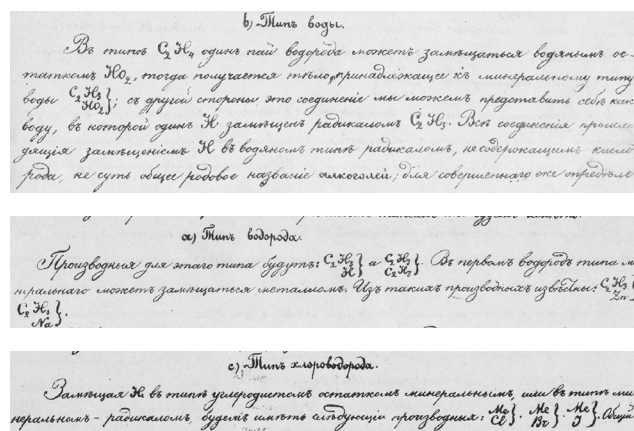 b) Типъ воды.
Въ типѣ C₂H₄ одинъ пай водорода можетъ замѣщаться водянымъ ос-
таткомъ HO₂, тогда получается тѣло, принадлежащее къ минеральному типу
воды C₂H₃ HO₂}; съ другой стороны, это соединеніе мы можемъ представить себѣ какъ
воду, въ которой одинъ H замѣщенъ радикаломъ C₂H₃. Всѣ соединенія происхо-
дящія замѣщеніемъ H въ водяномъ типѣ радикаломъ, не содержащемъ кисло
рода, не суть общее родовое названіе алкоголей; для совершеннаго же опредѣле
a) Типъ водорода.
Производныя для этаго типа будутъ: C₂H₃ H} а C₂H₃ C₂H₃}. Въ первомъ водородъ типа м
неральнаго можетъ замѣщаться металломъ. Изъ такихъ производныхъ извѣстны: C₂H₃ Zn
C₂H₃ Na}.
c) Типъ хлороводорода.
Замѣщая H въ типѣ углеродистомъ остаткомъ минеральнымъ, или въ типѣ ми
неральномъ - радикаломъ, будемъ имѣть слѣдующія производныя: Me Cl}. Me Br}. Me J}. Общій